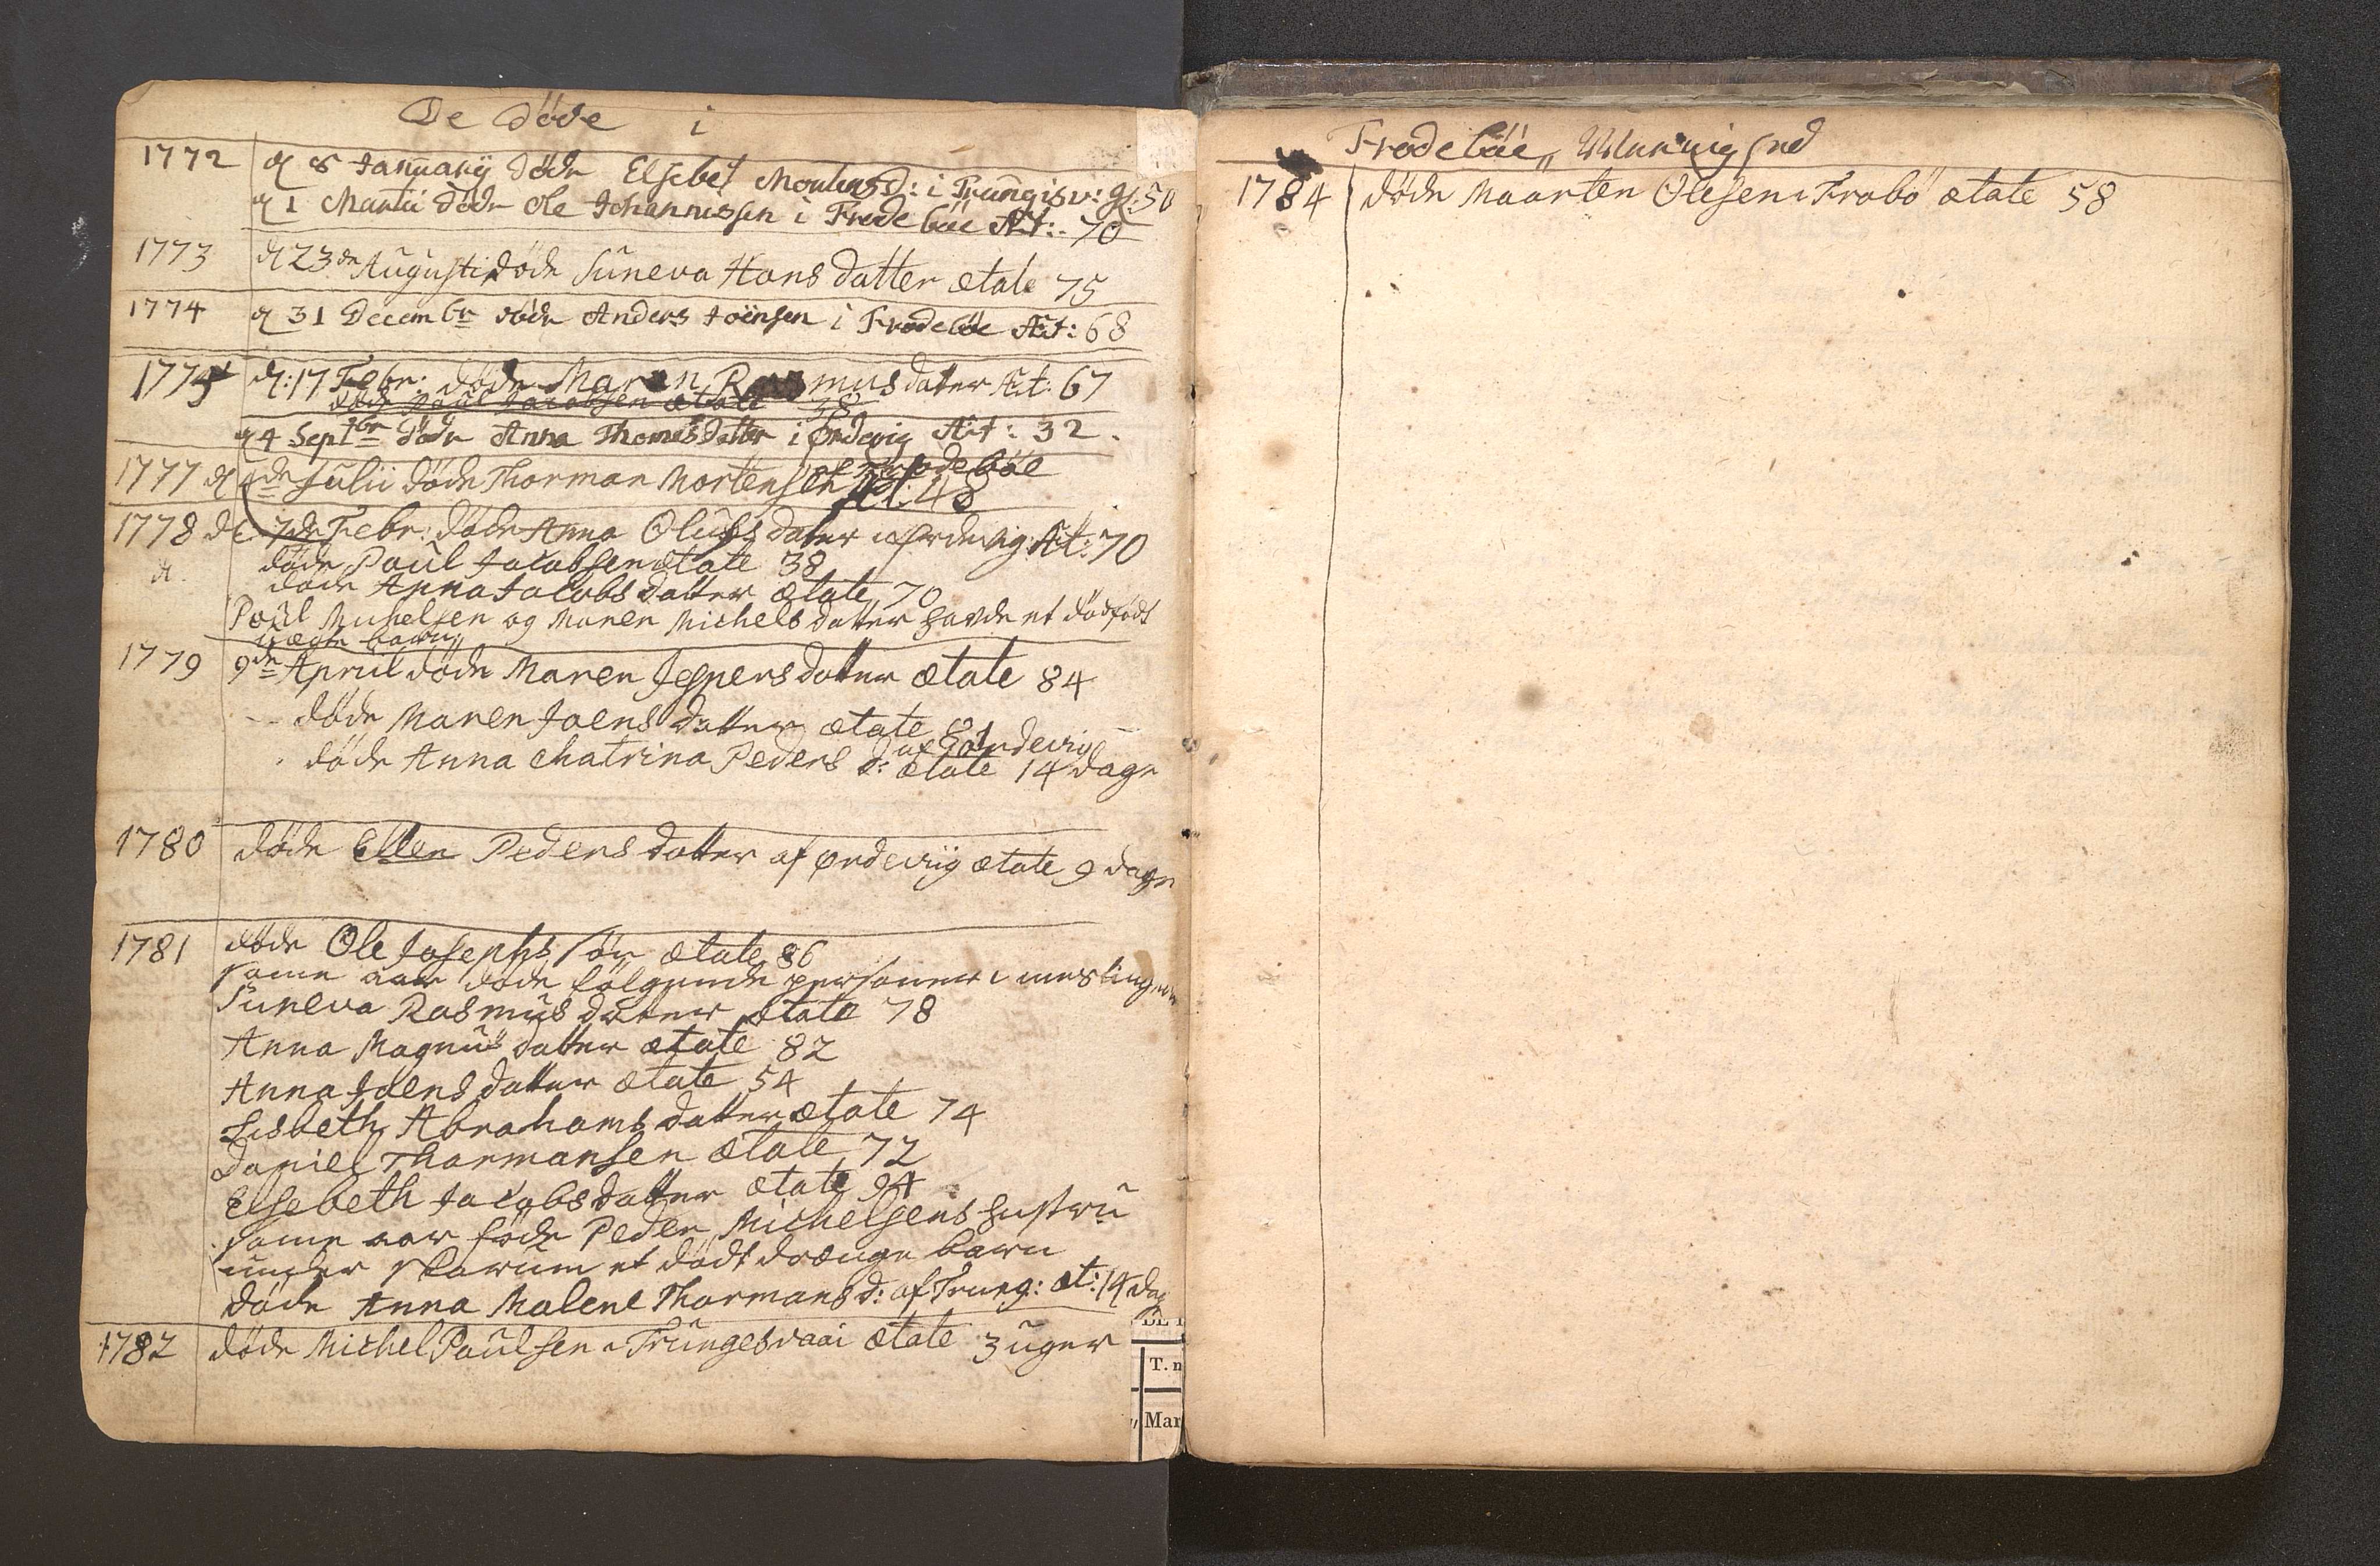 De Døde i
1772 d 8 Januarij døde Elsebet Mortensd: i Trungisv: gl: 50
d 1 Martii døde Ole Johannissen i Frodebøe Æt: 70
1773 d 23de Augusti døde Suneva Hans datter ætate 75
1774 d 31 Decembr døde Anders Joensen i Frodebøe Æt: 68
1775 d: 17 Febr: døde Maren Rasmus dater Æt: 67
døde Paul Jacobsen ætate 38
d 4 Septbr døde Anna Thomesdatter i Ørdevig Æt: 32.
1777 d Julii døde Thorman Mortensen Frodebøe
Æt: 48
1778 d 7de Febr: døde Anna Olufs dater i Ørdevig Æt: 70
døde Paul Jacobsen ætate 38
d. døde Anna Jacobs datter ætate 70
Poul Michelsen og Maren Michels datter havde et dødfødt
uægte barn
1779 9de April døde Maren Jespers datter ætate 84
døde Maren Joens datter ætate 81
døde Anna Chatrina Peders d: af Ørdevig ætate 14 dage
1780 døde Ellen Peders datter af Ørdeviig ætate 9 dage
1781 døde Ole Josephs søn ætate 86
same aar døde følgende personer i meslingerne
Suneva Rasmus datter ætate 78
Anna Magnus datter ætate 82
Anna Joens datter ætate 54
Lisbeth Abrahams datter ætate 74
Daniel Thormansen ætate 72
Elsebeth Jacobs datter ætate 94
same aar føde Peder Michelsens hustru
under Skarum et dødt drænge barn
døde Anna Malene Thormans d: af Trung: æt: 14 dag
1782 døde Michel Paulsen i Trungesvaai ætate 3 uger
T. n
Mar
Frodebøe
1784 døde Maarten Olesen i Frobø ætate 58